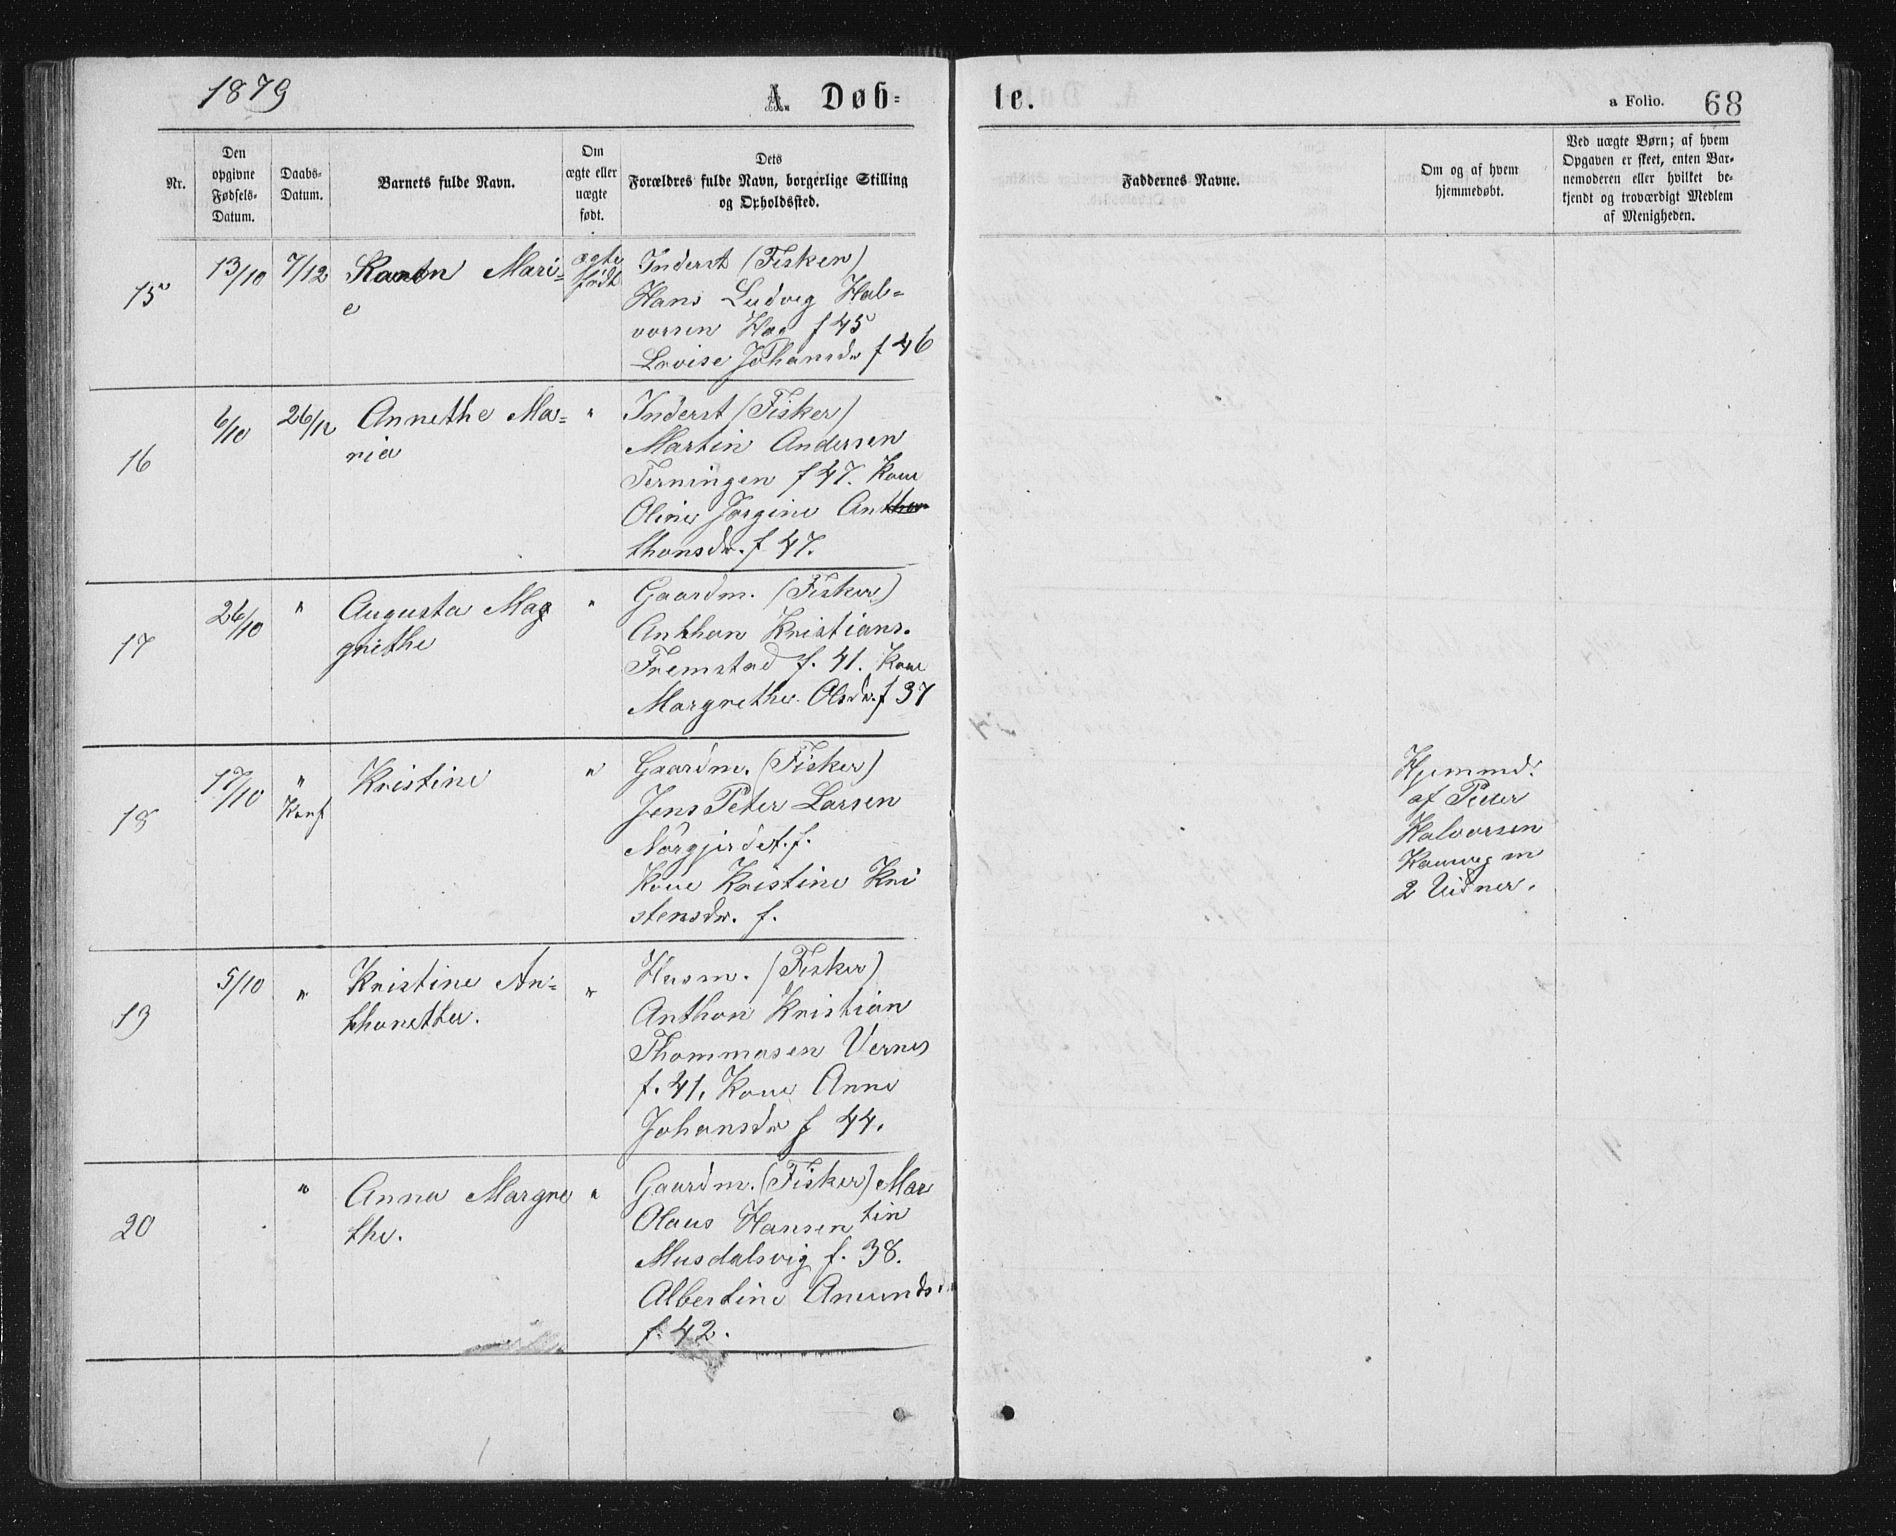 1879
A. Døb-
te.
a Folio.
68
Nr.
Den
opgivne
Fødsels-
Datum.
Daabs-
Datum.
Barnets fulde Navn.
Om
ægte eller
uægte
født.
Dets
Forældres fulde Navn, borgerlige Stilling
og Opholdssted.
Faddernes Navne.
Om og af hvem
hjemmedøbt.
Ved uægte Børn; af hvem
Opgaven er skeet, enten Bar-
nemoderen eller hvilket be-
kjendt og troværdigt Medlem
af Menigheden.
15
13/10
7/12
Karen Mari-
e
ægte
født
Inderst (Fisker)
Hans Ludvig Hal-
vorsen f 45
Lovise Johansdr f 46
16
6/10
26/12
Annethe Ma-
ria
"
Inderst (Fisker)
Martin Andersen
Terningen f 47. Kone
Oline Jørgine An
thonsdr. f 47.
17
26/10
"
Augusta Mar
grethe
"
Gaardm. (Fisker)
Anthon Kristians.
Fremstad f. 41. Kone
Margrethe Olsdr. f 37
18
17/10
"
Konf
Kristine
"
Gaardm. (Fisker)
Jens Peter Larsen
Nørgjerdet. f.
Kone Kristine Kri
stensdr. f.
Hjemmd.
af Peder
Halvorsen
m
2 Vidner.
19
5/10
"
Kristine An-
thonette.
"
Husm. (Fisker)
Anthon Kristian
Thommasen Vernes
f. 41. Kone Anne
Johansdr f 44.
20
"
Anna Margre
the.
"
Gaardm. (Fisker) Mar
Olaus Hansen tin
Musdalsvig f. 38.
Albertine Amunds
f. 42.